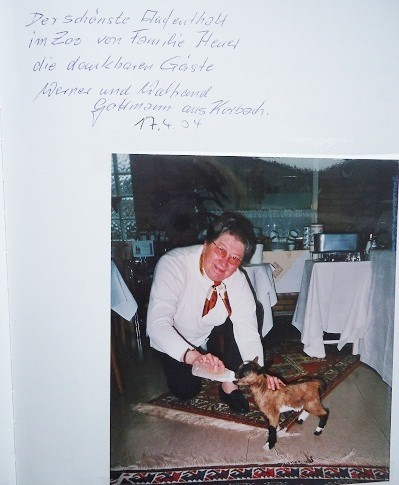 Der schönste Aufenthalt
im Zoo von Familie Heuer
die dankbaren Gäste
Werner und Waltraud
Gottmann aus Korbach.
17.4.04